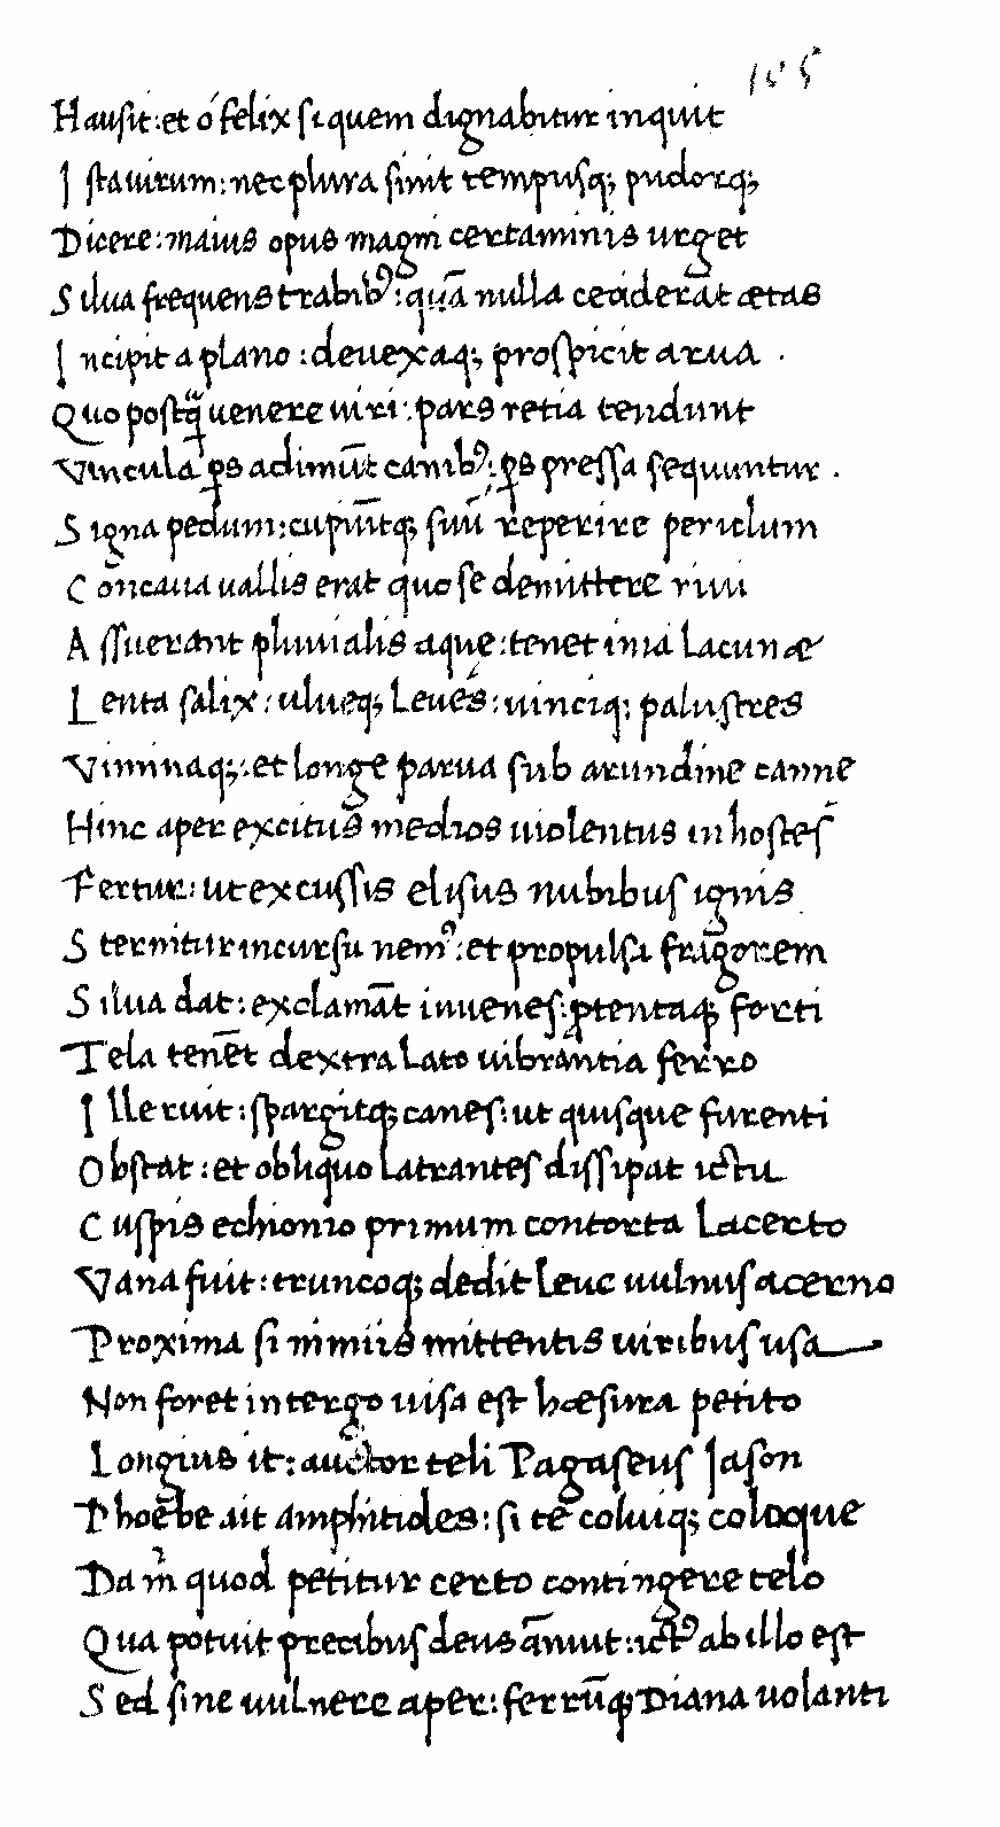 155
Hausit: et ó felix si quem dignabitur inquit
Ista uirum: nec plura sinit tempusq; pudorq;
Dicere: maius opus magni certaminis urget
Silua frequens trabibꝰ: quā nulla ceciderat ætas
Incipit a plano: deuexaq; prospicit arua.
Quo postq̃ uenere uiri: pars retia tendunt
Vincula ꝑs adimūt canibꝰ: ꝑs pressa sequuntur.
Signa pedum: cupiūtq; suū reperire periclum
Concaua uallis erat quo se demittere riui
Assuerant pluuialis aque: tenet ima lacunæ
Lenta salix: ulueq; leues: iunciq; palustres
Viminaq;: et longe parua sub arundine canne
Hinc aper excitus medios uiolentus in hostes
Fertur: ut excussis elisus nubibus ignis
Sternitur incursu nemꝰ: et propulsa fragorem
Silua dat: exclamāt iuuenes: ꝓtentaq; forti
Tela tenēt dextra lato uibrantia ferro
Ille ruit: spargitq; canes: ut quisque furenti
Obstat: et obliquo latrantes dissipat ictu
Cuspis echionio primum contorta lacerto
Vana fuit: truncoq; dedit leue uulnus acerno
Proxima si nimiis mittentis uiribus usa
Non foret in tergo uisa est hæsura petito
Longius it: auctor teli Pagaseus Jason
Phoebe ait amphitides: si te coluiq; coloque
Da m̃ quod petitur certo contingere telo
Qua potuit precibus deus āniut: ictꝰ ab illo est
Sed sine uulnere aper: ferrūq; Diana uolanti